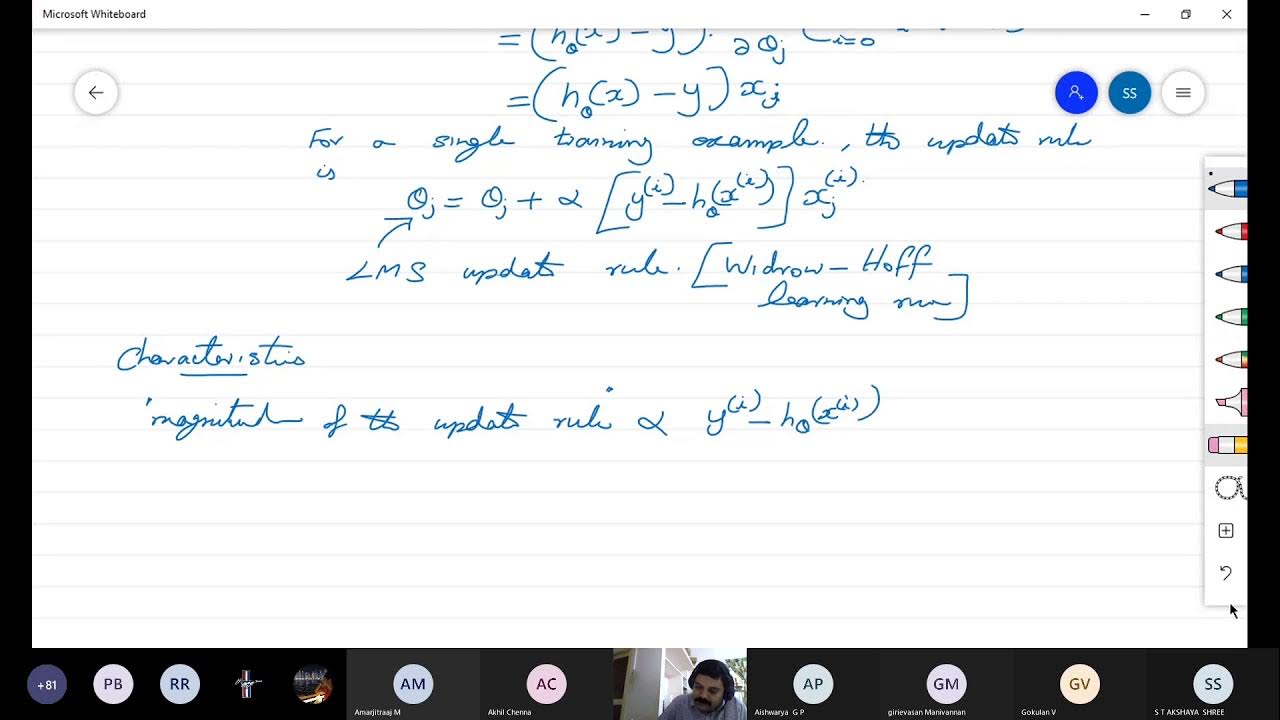 Microsoft Whiteboard
= (hθ(x) − y) · ∂θj i=0
= (hθ(x) − y) xj
SS
For a single training example, the update rule
is
θj = θj + α [y(i) − hθ(x(i))] xj(i)
LMS update rule. [Widrow – Hoff
learning rule]
Characteristics
"magnitude of the update rule" α y(i) − hθ(x(i))
+81 PB RR AM AC AP GM GV SS
Amarjitraaj M Akhil Chenna Aishwarya G P girievasan Manivannan Gokulan V S T AKSHAYA SHREE